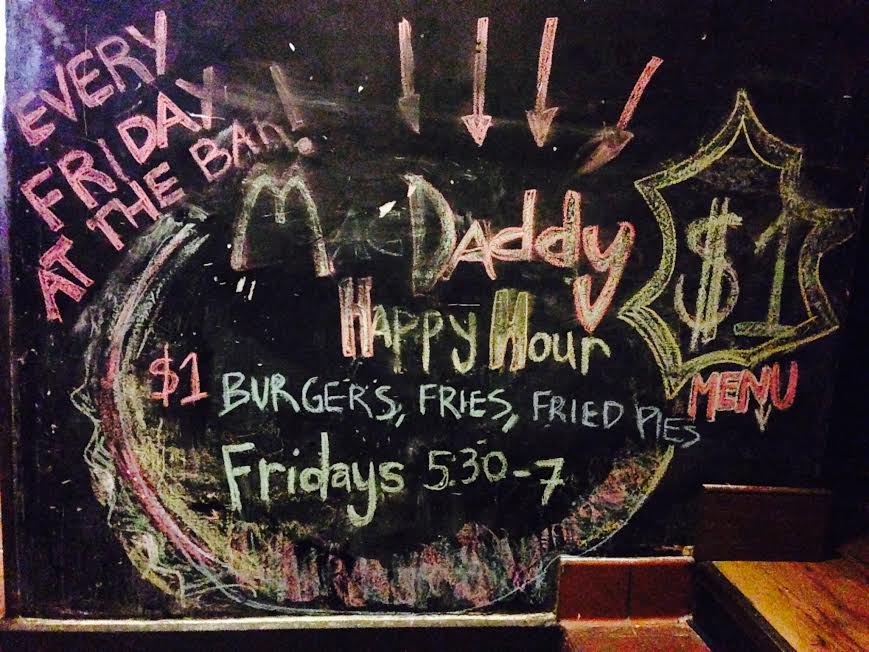 EVERY
FRIDAY
AT THE BAR!
MacDaddy
HAPPY HOUR
$1 BURGERS, FRIES, FRIED PIES
Fridays 5:30-7
$1
MENU